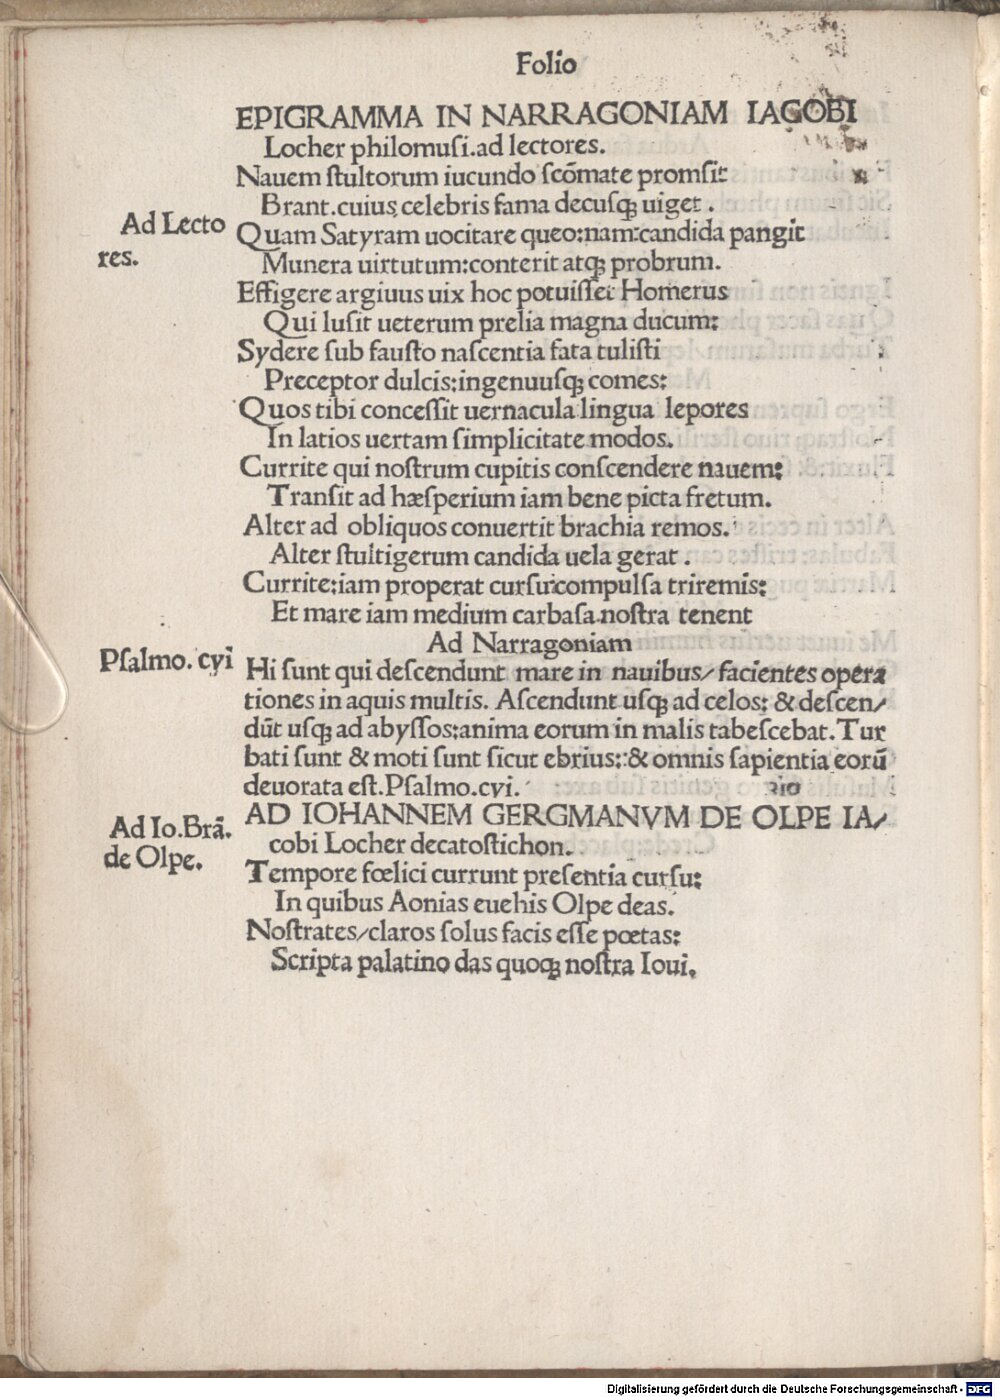 Folio
EPIGRAMMA IN NARRAGONIAM IACOBI
Locher philomusi.ad lectores.
Nauem ſtultorum iucundo ſcõmate promſit
Brant.cuius celebris fama decuſqꝫ uiget.
Ad Lecto
res.
Quam Satyram uocitare queo:nam:candida pangit
Munera uirtutum:conterit atqꝫ probrum.
Effigere argiuus uix hoc potuiſſet Homerus
Qui luſit ueterum prelia magna ducum:
Sydere ſub fauſto naſcentia fata tuliſti
Preceptor dulcis:ingenuuſqꝫ comes:
Quos tibi conceſſit uernacula lingua lepores
In latios uertam ſimplicitate modos.
Currite qui noſtrum cupitis conſcendere nauem:
Tranſit ad hæſperium iam bene picta fretum.
Alter ad obliquos conuertit brachia remos.
Alter ſtultigerum candida uela gerat.
Currite:iam properat curſu:compulſa triremis:
Et mare iam medium carbaſa noſtra tenent
Ad Narragoniam
Pſalmo. cvi
Hi ſunt qui deſcendunt mare in nauibus/facientes opera
tiones in aquis multis. Aſcendunt uſqꝫ ad celos: & deſcen/
dūt uſqꝫ ad abyſſos:anima eorum in malis tabeſcebat.Tur
bati ſunt & moti ſunt ſicut ebrius: & omnis ſapientia eorū
deuorata eſt.Pſalmo.cvi.
AD IOHANNEM GERGMANVM DE OLPE IA/
cobi Locher decatoſtichon.
Ad Io.Brā.
de Olpe.
Tempore fœlici currunt preſentia curſu:
In quibus Aonias euehis Olpe deas.
Noſtrates/claros ſolus facis eſſe poetas:
Scripta palatino das quoqꝫ noſtra Ioui.
Digitalisierung gefördert durch die Deutsche Forschungsgemeinschaft - DFG